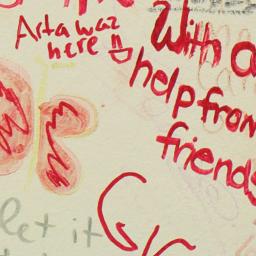 Arta waz
here
With a
help from
friends
let it